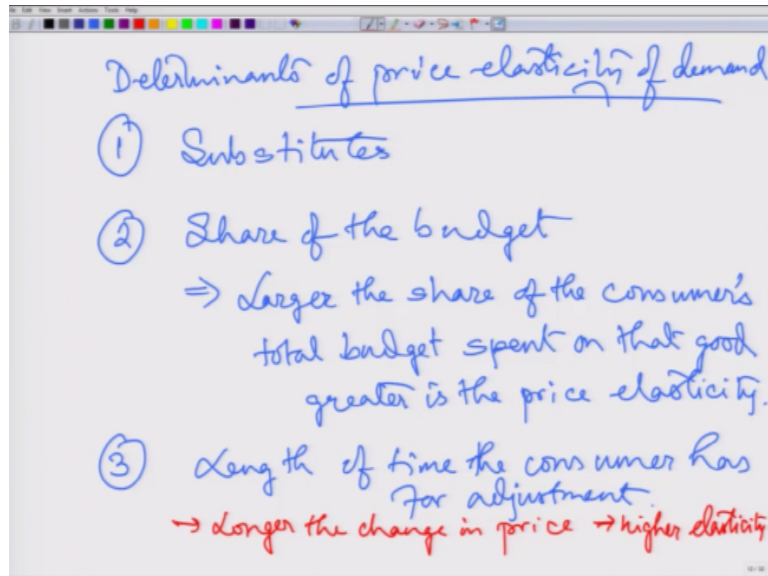 Determinants of price elasticity of demand
① Substitutes
② Share of the budget
⇒ Larger the share of the consumer's
total budget spent on that good
greater is the price elasticity.
③ Length of time the consumer has
For adjustment.
→ Longer the change in price → higher elasticity